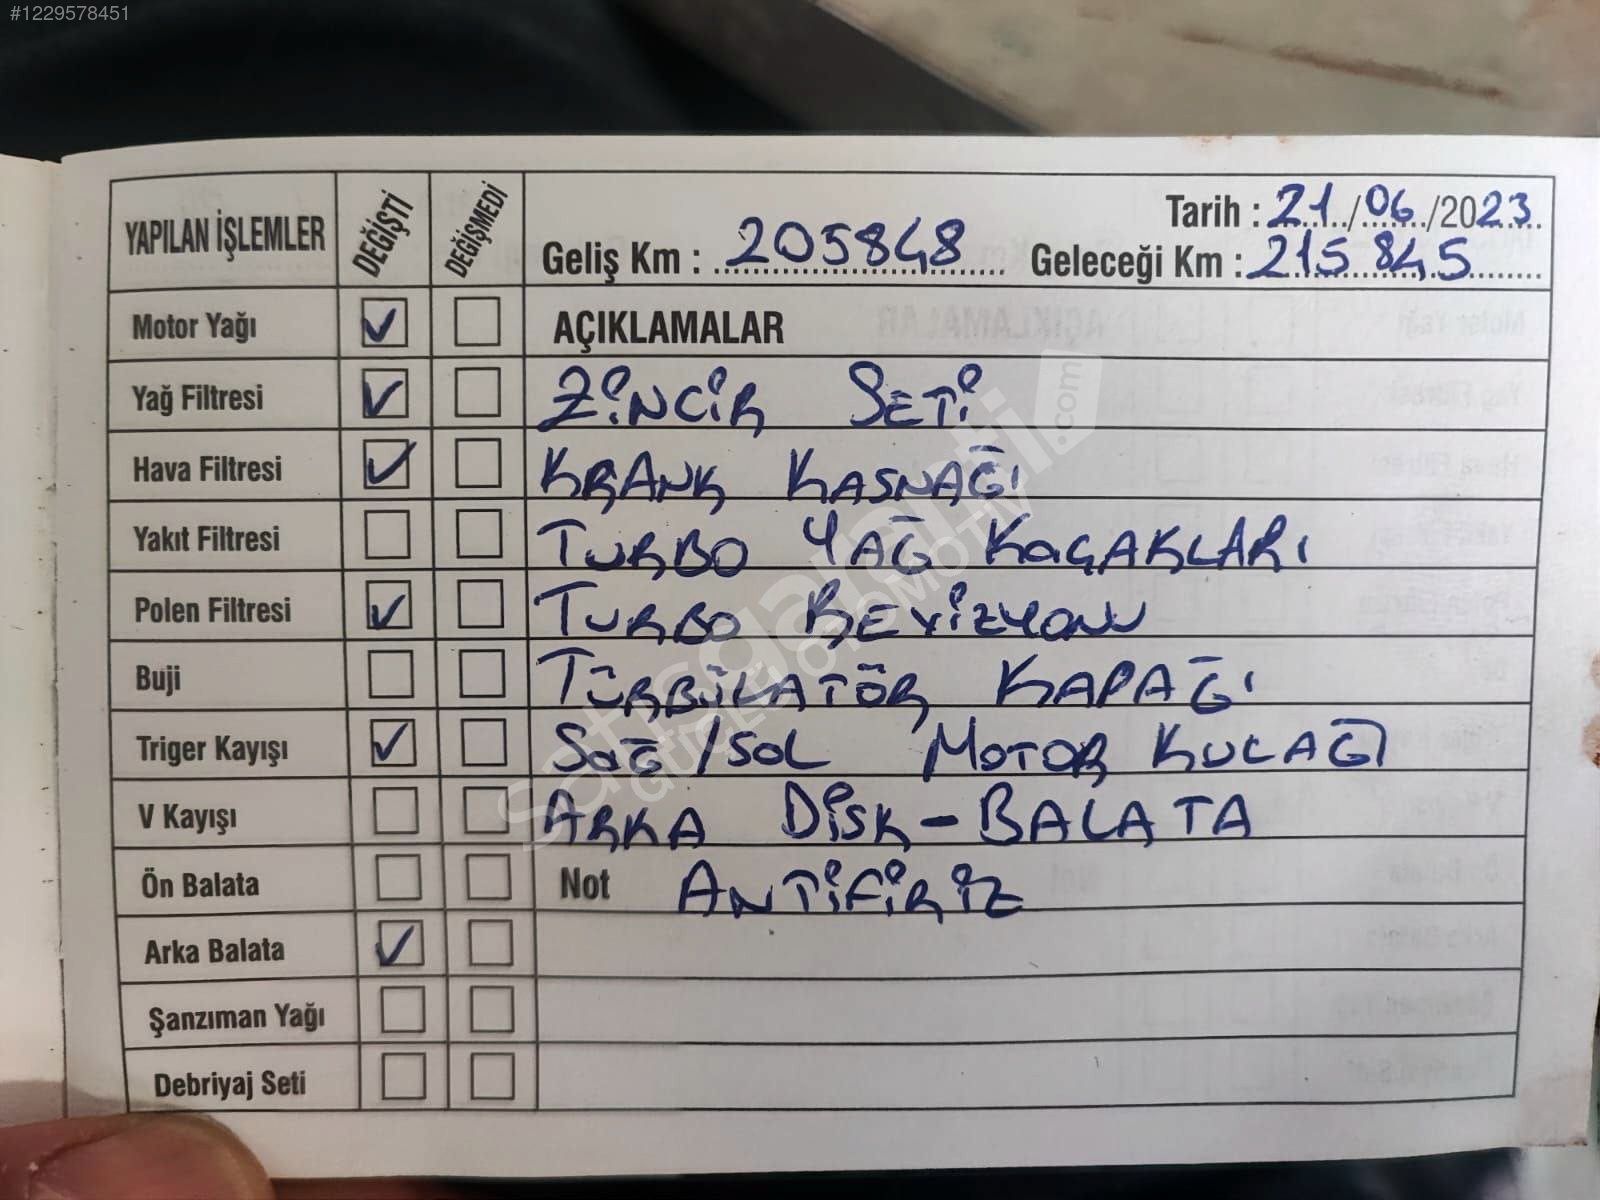 #1229578451
YAPILAN İŞLEMLER DEĞİŞTİ DEĞİŞMEDİ
Tarih : 21/06/2023
Geliş Km : 205848 Geleceği Km : 215845
Motor Yağı ✓ AÇIKLAMALAR
Yağ Filtresi ✓ ZİNCİR SETİ
Hava Filtresi ✓ KRANK KASNAĞI
Yakıt Filtresi TURBO YAĞ KaÇAKLARI
Polen Filtresi ✓ TURBO REVİZYONU
Buji TÜRBÜLATÖR KAPAĞI
Triger Kayışı ✓ SaĞ/SOL MOTOR KULAĞI
V Kayışı ARKA DİSK-BALATA
Ön Balata Not ANTİFİRİZ
Arka Balata ✓
Şanzıman Yağı
Debriyaj Seti
satisgaleri.com
GÜÇLÜ OTOMOTİV